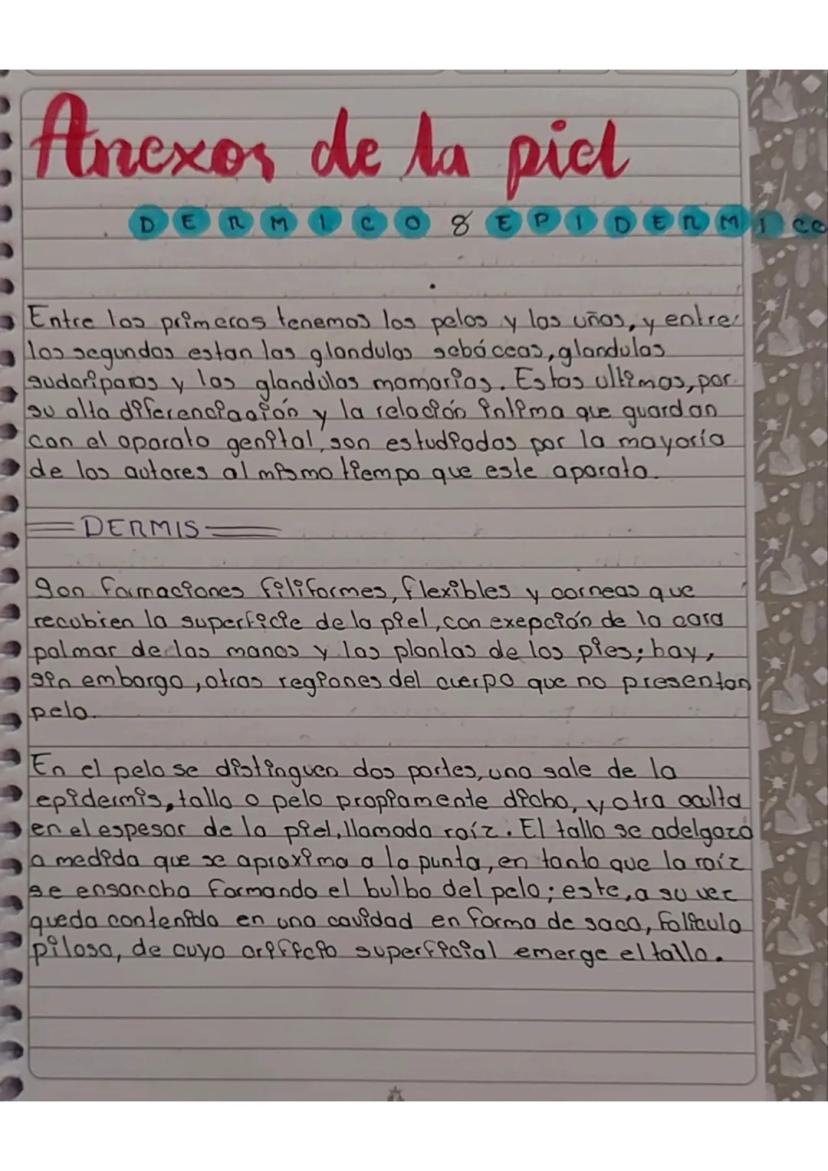 Anexos de la piel
DERMICO & EPIDERMICO
Entre los primeros tenemos los pelos y las uñas, y entre
los segundos estan las glandulas sebáceas, glandulas
sudoriparas y las glandulas mamarias. Estas ultimas, por
su alta diferenciaación y la relación intima que guardan
con el aparato genital, son estudiadas por la mayoría
de los autores al mismo tiempo que este aparato.
DERMIS
Son formaciones filiformes, flexibles y corneas que
recubren la superficie de la piel, con exepción de la cara
palmar de las manos y las plantas de los pies; hay,
sin embargo, otras regiones del cuerpo que no presentan
pelo.
En el pelo se distinguen dos partes, una sale de la
epidermis, tallo o pelo propiamente dicho, y otra oculta
en el espesor de la piel, llamada raíz. El tallo se adelgaza
a medida que se aproxima a la punta, en tanto que la raíz
se ensancha formando el bulbo del pelo; este, a su vez
queda contenido en una cavidad en forma de saco, Folículo
piloso, de cuyo orificio superficial emerge el tallo.